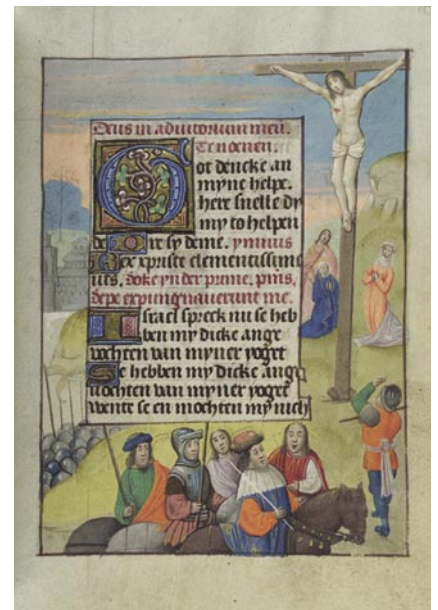 Deus in adiutorium meu.
Te noenen.
Got dencke an
myne helpe.
here snelle dy
my to helpen
de ere sy deme. ymnus
Rex xpriste clementissime
uts. doke yn der prime. pins.
depe expungnauerunt me.
Israel spreck nu se heb
ben my dicke ange
vochten van myner yoget
Se hebben my dicke ange
vochten van myner yoget
wente se en mochten my nich